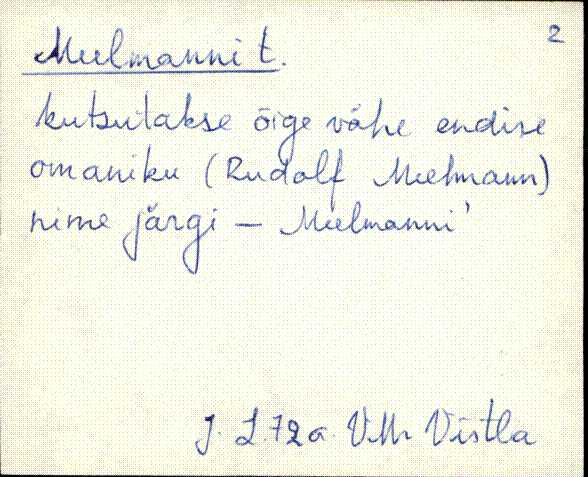 2
Meelmanni t.
kutsutakse õige vähe endise
omaniku (Rudolf Meelmann)
nime järgi — Meelmanni'
J. L. 72 a. VMr Vistla